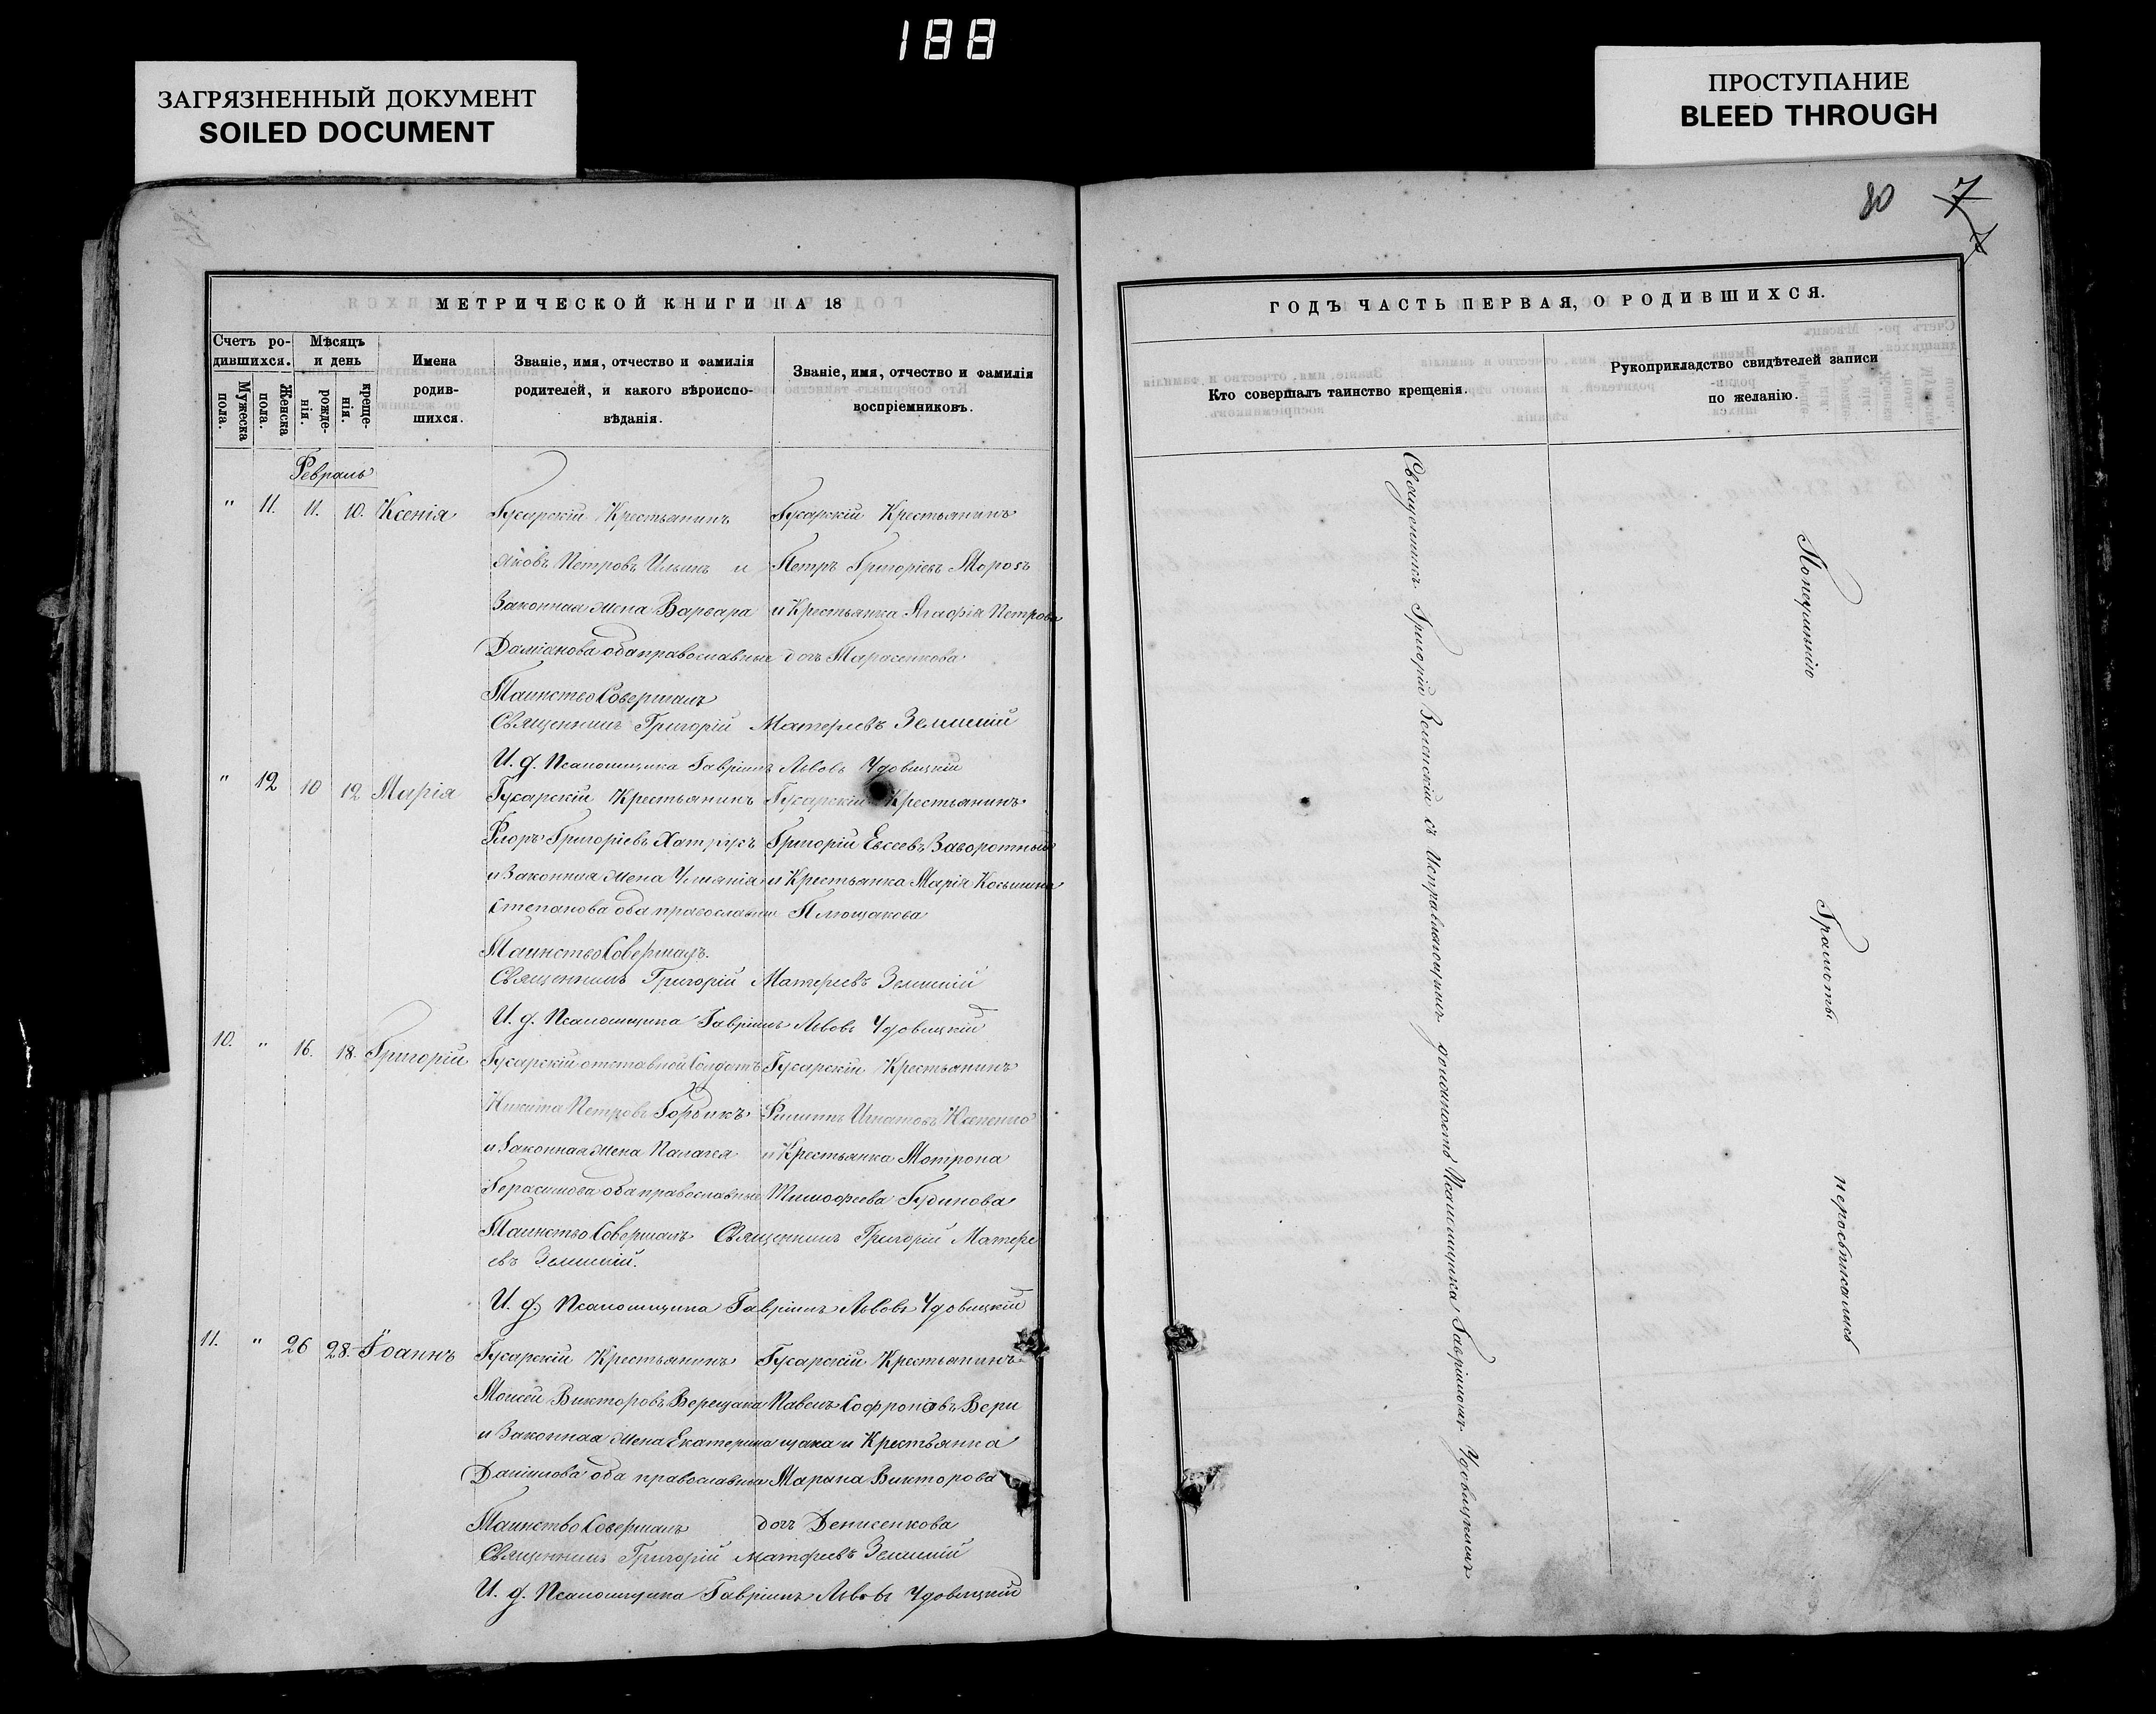 188
ЗАГРЯЗНЕННЫЙ ДОКУМЕНТ
SOILED DOCUMENT
ПРОСТУПАНИЕ
BLEED THROUGH
80 7
7
МЕТРИЧЕСКОЙ КНИГИ НА 18
Счетъ ро-
дившихся.
Мужеска
пола.
Женска
пола.
Мѣсяцъ
и день
рожде-
нія.
креще-
нія.
Имена
родив-
шихся.
Званіе, имя, отчество и фамилія
родителей, и какого вѣроиспо-
вѣданія.
Званіе, имя, отчество и фамилія
воспріемниковъ.
Февраль
" 11. 11. 10. Ксенія
Гусарскій Крестьянинъ
Яковъ Петровъ Ильинъ и
Законная жена Варвара
Даміанова оба православные
Гусарскій Крестьянинъ
Петръ Григоріевъ Морозъ
и Крестьянка Агафія Петрова
дочь Тарасенкова
Таинство Совершалъ
Священникъ Григорій Матфеевъ Зелинскій
И. д. Псаломщика Гавріилъ Львовъ Удовицкій
" 12 10 12 Марія
Гусарскій Крестьянинъ
Флоръ Григоріевъ
и Законная жена Уліанія
Степанова оба православные
Гусарскій Крестьянинъ
Григорій Евсеевъ Заворотный
и Крестьянка Марія Косьмина
Плющакова
Таинство Совершалъ.
Священникъ Григорій Матфеевъ Зелинскій
И. д. Псаломщика Гавріилъ Львовъ Удовицкій
10. " 16. 18. Григорій
Гусарскій отставной Солдатъ
Никита Петровъ
и Законная жена Палагея
Герасимова оба православные
Гусарскій Крестьянинъ
Филиппъ Игнатовъ
и Крестьянка Мотрона
Тимофеева Гудимова
Таинство Совершалъ Священникъ Григорій Матфе
евъ Зелинскій.
И. д. Псаломщика Гавріилъ Львовъ Удовицкій
11. " 26 28. Іоаннъ
Гусарскій Крестьянинъ
Моисей Викторовъ Верещака
и Законная жена Екатерина
Даніилова оба православные
Гусарскій Крестьянинъ
Павелъ Софроніевъ Вере
щака и Крестьянка
Марина Викторова
дочь Денисенкова
Таинство Совершалъ
Священникъ Григорій Матфеевъ Зелинскій
И. д. Псаломщика Гавріилъ Львовъ Удовицкій
ГОДЪ ЧАСТЬ ПЕРВАЯ, О РОДИВШИХСЯ.
Кто совершалъ таинство крещенія.
Рукоприкладство свидѣтелей записи
по желанію.
Священникъ Григорій Зелинскій съ Исправляющимъ должность Псаломщика Гавріиломъ Удовицкимъ
По неумѣнію Грамоты неросписались